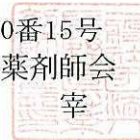 0番15号
薬剤師会
宰